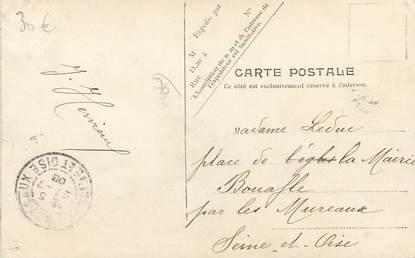 30 €
M
Expédié par
N°
Dmt à
Rue
L'inscription du nom et de l'adresse de
l'expéditeur est facultative.
CARTE POSTALE
Ce côté est exclusivement réservé à l'adresse.
Madame Leduc
place de l'église la Mairie
Bouafle
par les Mureaux
Seine-et-Oise
ET OISE